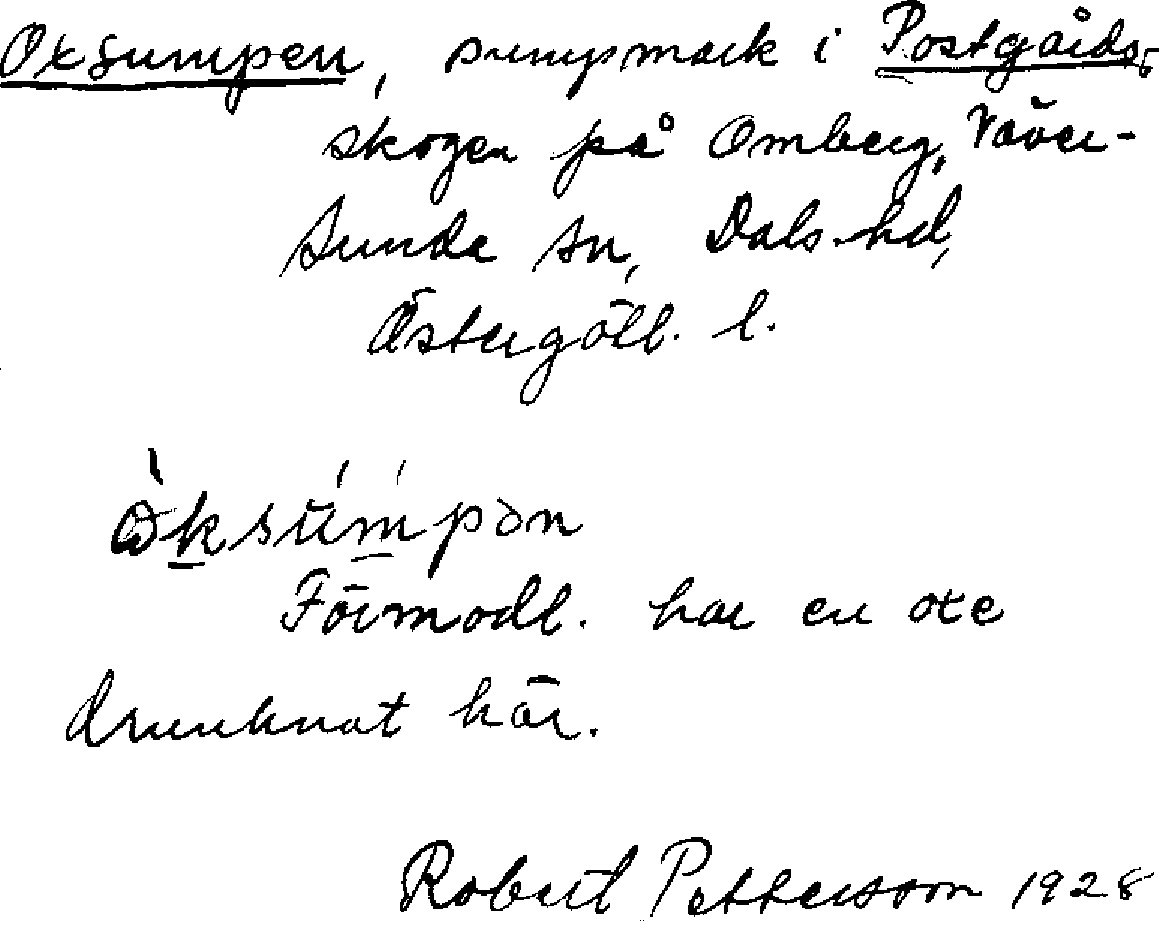 Oxsumpen, sumpmark i Postgårds-
skogen på Omberg, Väver-
sunde sn, Dals hd,
Östergötl. l.
òksúmpən
Förmodl. har en oxe
drunknat här.
Robert Pettersson 1928